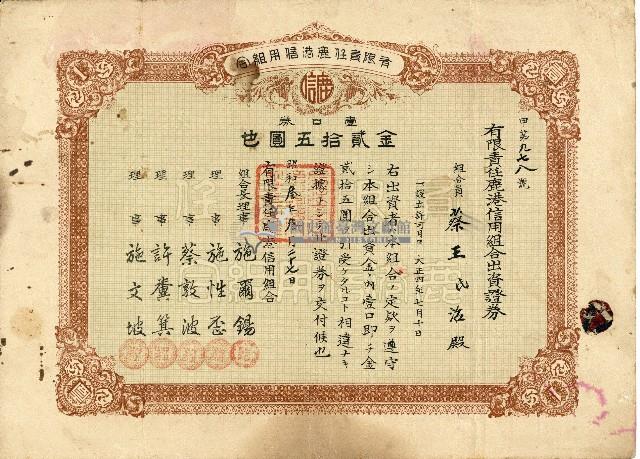 有限責任鹿港信用組合
壹口券
金貳拾五圓也
甲第九七八號
有限責任鹿港信用組合出資證券
組合員 蔡王氏治殿
一設立許可日 大正四年七月十日
右出資者ハ本組合ノ定款ヲ遵守
シ本組合出資金ノ內壹口即チ金
貳拾五圓ヲ引受ケタルコト相違ナキ
證據トシテ此證券ヲ交付候也
昭和
有限責任鹿港信用組合
組合長理事 施爾錫
理事 施性
理事 蔡敦波
理事 許糞箕
理事 施文坡